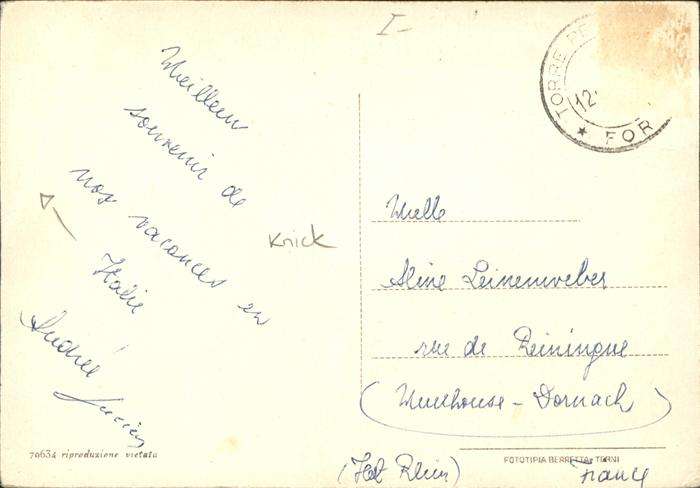 I-
TORRE PE
12
★ FOR
Meilleur
souvenir de
nos vacances en
Italie
Andrée
Lucien
Knick
Melle
Aline Leinenweber
rue de Reiningue
(Mulhouse - Dornach)
(Ht Rhin) France
70634 riproduzione vietata
FOTOTIPIA BERRETTA - TERNI